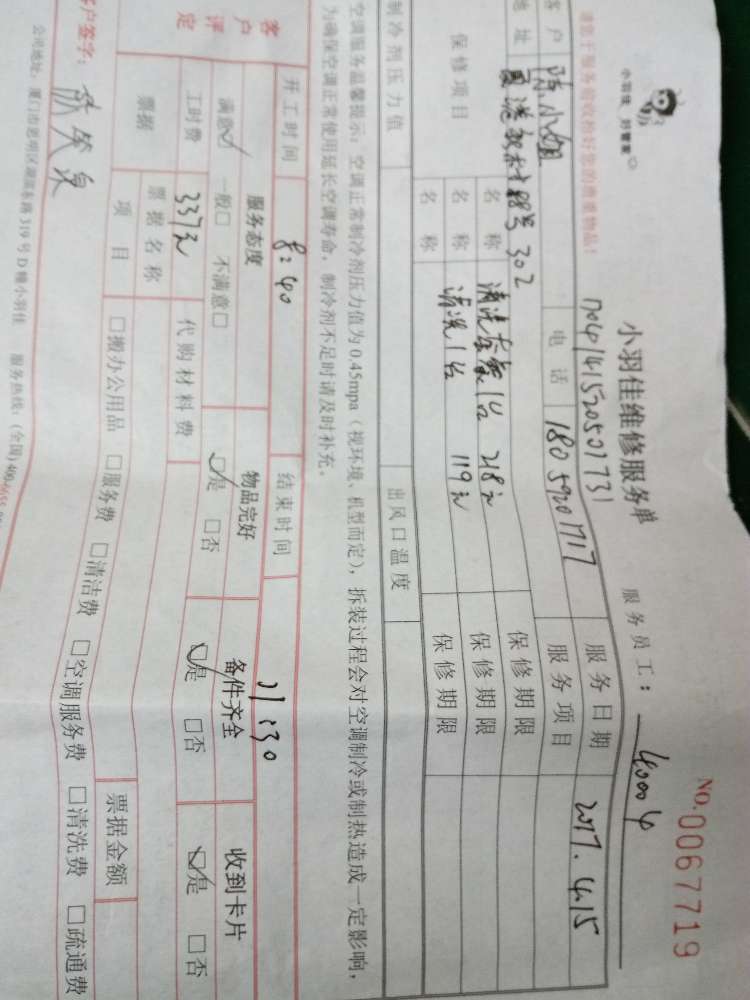 小羽佳 好管家
请您于服务前收拾好您的贵重物品!
小羽佳维修服务单
NO.0067719
服务员工: 40004
170414152050731
客户 陈小姐 电话 18059201717 服务日期 2017.4.15
地址 88号302 服务项目
保修项目 名称 清洗 1台 218元 保修期限
名称 清洗1台 119元 保修期限
名称 保修期限
制冷剂压力值 出风口温度
空调服务温馨提示: 空调正常制冷剂压力值为0.45mpa(视环境、机型而定), 拆装过程会对空调制冷或制热造成一定影响,
为确保空调正常使用延长空调寿命, 制冷剂不足时请及时补充。
开工时间 8:40 结束时间 11:30
客户评定 服务态度 物品完好 备件齐全 收到卡片
满意☑ 一般□ 不满意□ ☑是 □否 ☑是 □否 ☑是 □否
工时费 337元 代购材料费
票据 票据名称 票据金额
项目 □搬办公用品 □服务费 □清洁费 □空调服务费 □清洗费 □疏通费
客户签字:
公司地址: 厦门市思明区湖滨东路319号D幢小羽佳 服务热线: (全国)400